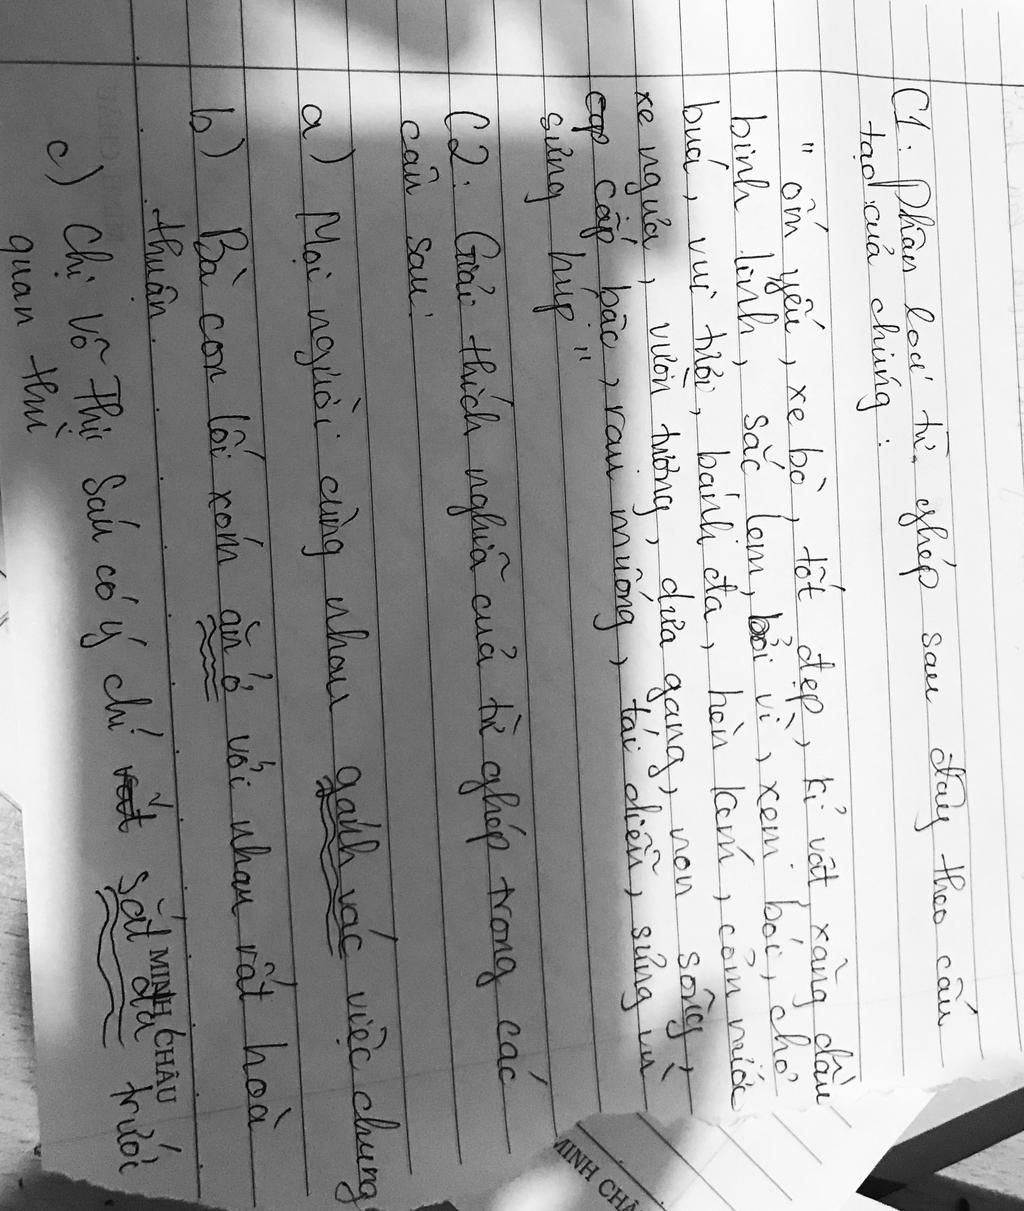 C1: Phân loại từ ghép sau đây theo cấu
tạo của chúng:
" ốm yếu, xe bò, tốt đẹp, kỉ vật, xăng dầu
binh lính, sắc lem, bởi vì, xem bói, chợ
búa, vui tươi, bánh đa, hèn kém, cơm nước
xe ngựa, vườn tương, dưa gang, non sông,
cấp bậc, rau muống, tái diễn, sưng vù
sưng húp"
C2: Giải thích nghĩa của từ ghép trong các
câu sau:
a) Mọi người cùng nhau gánh vác việc chung
b) Bà con lối xóm ăn ở với nhau rất hoà
thuận.
c) Chị Võ Thị Sáu có ý chí sắt đá trước
quan thù
MINH CHÂU
MINH CHÂ